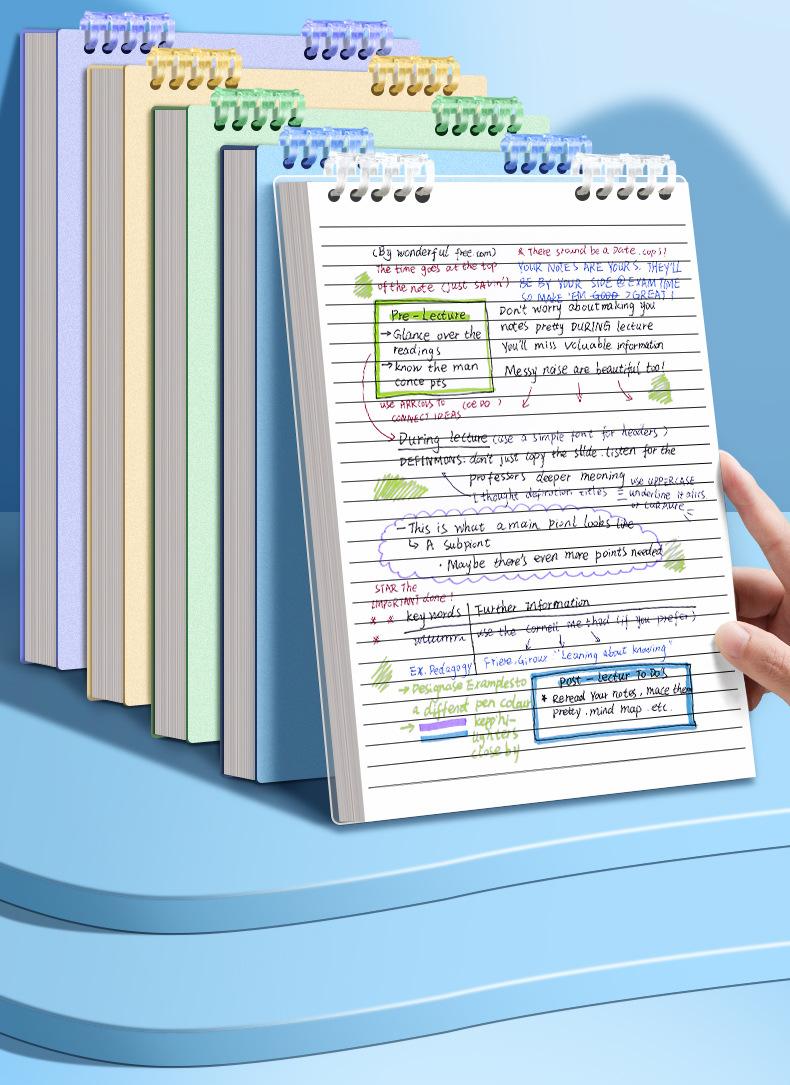 (By wonderful free.com)
The time goes at the top
of the note (just sayin')
& There should be a Date.
YOUR NOTES ARE YOURS. THEY'LL
BE BY YOUR SIDE @ EXAM TIME
SO MAKE 'EM GOOD > GREAT!
Pre-Lecture
→Glance over the
readings
→know the man
conce pts
Don't worry about making you
notes pretty DURING lecture
You'll miss valuable information
Messy noise are beautiful too!
USE ARROWS TO
CONNECT IDEAS
During lecture (use a simple font for headers)
don't just copy the slide. listen for the
professors deeper meaning
USE UPPERCASE
underline italics
- This is what a main piont looks like
↳ A subpiont
· Maybe there's even more points needed
STAR The
IMPORTANT done!
* *
*
key words
Further Information
use the cornell method (if you prefer)
Ex. Pedagogy
Friere, Girour "Leaning about knowing"
→ Designase Examplesto
a differenl pen colour
→
kepp hi-
lighters
close by
post - lectur To Do's
* Reread Your notes, mace them
pretty. mind map. etc.